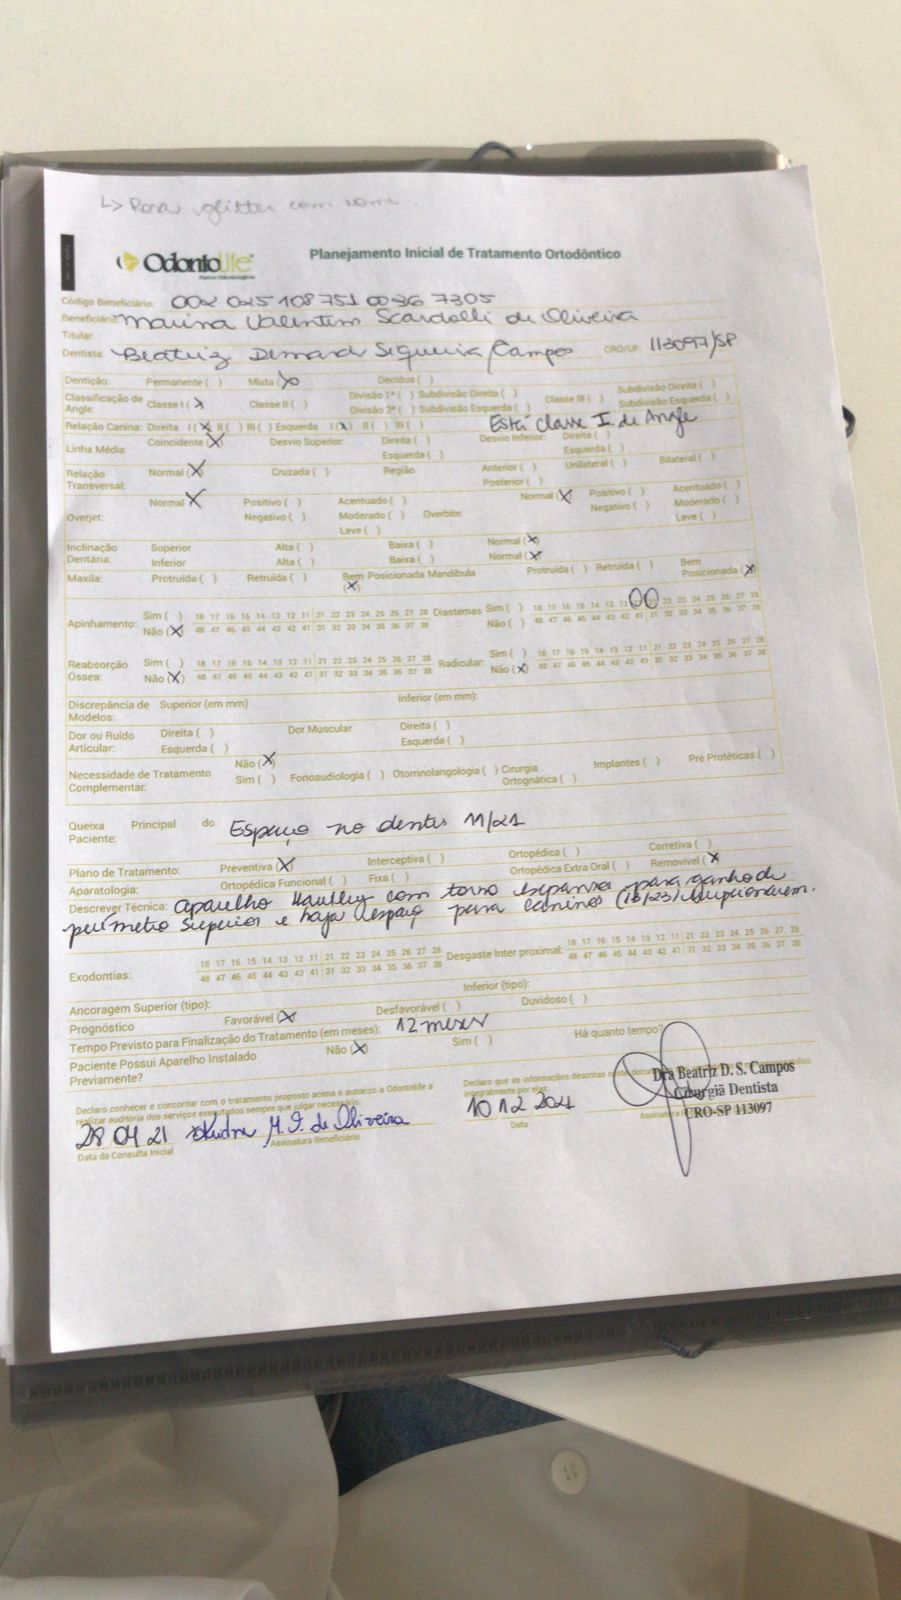 ↳ Para glitter com nome.
Odontolife
Planos Odontológicos
Planejamento Inicial de Tratamento Ortodôntico
Código Beneficiário: 002 025 108 751 0036 7305
Beneficiário: Marina Valentim Scardelli de Oliveira
Titular:
Dentista: Beatriz Siqueira Campos CRO/UF: 113097/SP
Dentição: Permanente ( ) Mista (X) Decídua ( )
Classificação de Angle: Classe I (X) Classe II ( ) Divisão 1ª ( ) Subdivisão Direita ( ) Classe III ( ) Subdivisão Direita ( )
Divisão 2ª ( ) Subdivisão Esquerda ( ) Subdivisão Esquerda ( )
Relação Canina: Direita I (X) II ( ) III ( ) Esquerda I (X) II ( ) III ( ) Está classe I de Angle
Linha Média: Coincidente (X) Desvio Superior: Direita ( ) Desvio Inferior: Direita ( )
Esquerda ( ) Esquerda ( )
Relação Transversal: Normal (X) Cruzada ( ) Região Anterior ( ) Unilateral ( ) Bilateral ( )
Posterior ( )
Normal (X) Positivo ( ) Acentuado ( ) Normal (X) Positivo ( ) Acentuado ( )
Overjet: Negativo ( ) Moderado ( ) Overbite Negativo ( ) Moderado ( )
Leve ( ) Leve ( )
Inclinação Dentária: Superior Alta ( ) Baixa ( ) Normal (X)
Inferior Alta ( ) Baixa ( ) Normal (X)
Maxila: Protruída ( ) Retruída ( ) Bem Posicionada (X) Mandíbula Protruída ( ) Retruída ( ) Bem Posicionada (X)
Apinhamento: Sim ( ) 18 17 16 15 14 13 12 11 21 22 23 24 25 26 27 28 Diastemas: Sim ( ) 18 17 16 15 14 13 12 11 21 22 23 24 25 26 27 28
Não (X) 48 47 46 45 44 43 42 41 31 32 33 34 35 36 37 38 Não ( ) 48 47 46 45 44 43 42 41 31 32 33 34 35 36 37 38
Reabsorção Óssea: Sim ( ) 18 17 16 15 14 13 12 11 21 22 23 24 25 26 27 28 Radicular: Sim ( ) 18 17 16 15 14 13 12 11 21 22 23 24 25 26 27 28
Não (X) 48 47 46 45 44 43 42 41 31 32 33 34 35 36 37 38 Não (X) 48 47 46 45 44 43 42 41 31 32 33 34 35 36 37 38
Discrepância de Modelos: Superior (em mm) Inferior (em mm):
Dor ou Ruído Articular: Direita ( ) Dor Muscular Direita ( )
Esquerda ( ) Esquerda ( )
Necessidade de Tratamento Complementar: Não (X)
Sim ( ) Fonoaudiologia ( ) Otorrinolangologia ( ) Cirurgia Ortognática ( ) Implantes ( ) Pré Protéticas ( )
Queixa Principal do Paciente: Espaço no dentes 11/21
Plano de Tratamento: Preventiva (X) Interceptiva ( ) Ortopédica ( ) Corretiva ( )
Aparatologia: Ortopédica Funcional ( ) Fixa ( ) Ortopédica Extra Oral ( ) Removível (X)
Descrever Técnica: aparelho Hawlley com torno expansor para ganho de
perímetro superior e haja espaço para caninos (13/23)
Exodontias: 18 17 16 15 14 13 12 11 21 22 23 24 25 26 27 28 Desgaste Inter proximal: 18 17 16 15 14 13 12 11 21 22 23 24 25 26 27 28
48 47 46 45 44 43 42 41 31 32 33 34 35 36 37 38 48 47 46 45 44 43 42 41 31 32 33 34 35 36 37 38
Ancoragem Superior (tipo): Inferior (tipo):
Prognóstico Favorável (X) Desfavorável ( ) Duvidoso ( )
Tempo Previsto para Finalização do Tratamento (em meses): 12 meses
Paciente Possui Aparelho Instalado Previamente? Não (X) Sim ( ) Há quanto tempo?
Declaro conhecer e concordar com o tratamento proposto acima e autorizo a Odontolife a
realizar auditoria dos serviços executados sempre que julgar necessário.
Declaro que as informações descritas
integralmente por elas.
28 04 21 M. F. de Oliveira
Data da Consulta Inicial Assinatura Beneficiário
10 12 2021
Data
Dra Beatriz D. S. Campos
Cirurgiã Dentista
CRO-SP 113097